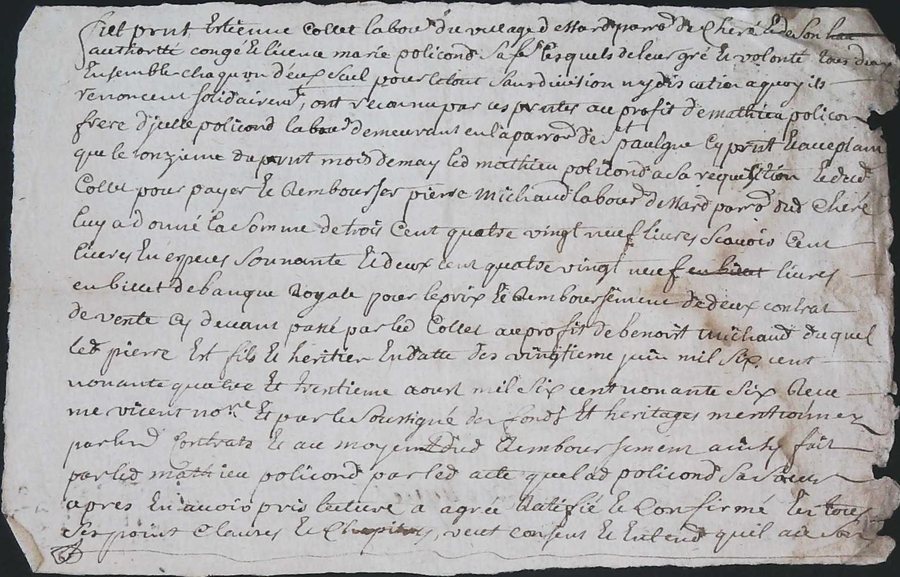 fut prnt Estienne Collet labour du village dessard parr de Cheré Led de son
authorité congé Et licence marie policond sa fe Lesquels de leur gré Et volonté tous deux
Ensemble chaquun d'eux seul pour le tout sans division ny discution a quoy ils
renoncent solidairemt, ont reconnu par ces prntes au profit de mathieu policon
frere d'jcelle policond labour demeurant en la parr de St paulgne Cy prnt Et acceptant
que le onzieme du prnt mois de may led mathieu policond a la requisition de dud
Collet pour payer Et Rembourser pierre Michaud labour dessard parr dud Cheré
luy a donné la somme de trois Cent quatre vingt neuf livres scavoir Cent
livres En especes sonnante Et deux cent quatre vingt neuf en billet livres
en billet de banque Royale pour le prix Et Remboursement de deux contrat
de vente Cy devant passé par led Collet au profit de benoist Michaud duquel
led pierre Est fils Et heritier En datte des vingtieme juin mil six cent
nonante quatre Et trentieme aoust mil six cent nonante six Receu
me vicent nore Et par le soussigné des fonds Et heritages mentionnez
par lesd Contrats Et au moyen dud Remboursement ainsy fait
par led mathieu policond par led acte que lad policond sa sœur
apres En avoir pris lecture a agreé Ratifié Et Confirmé En tous
ses point Clauses Et Chapitres, veut consent Et Entend quil aie son